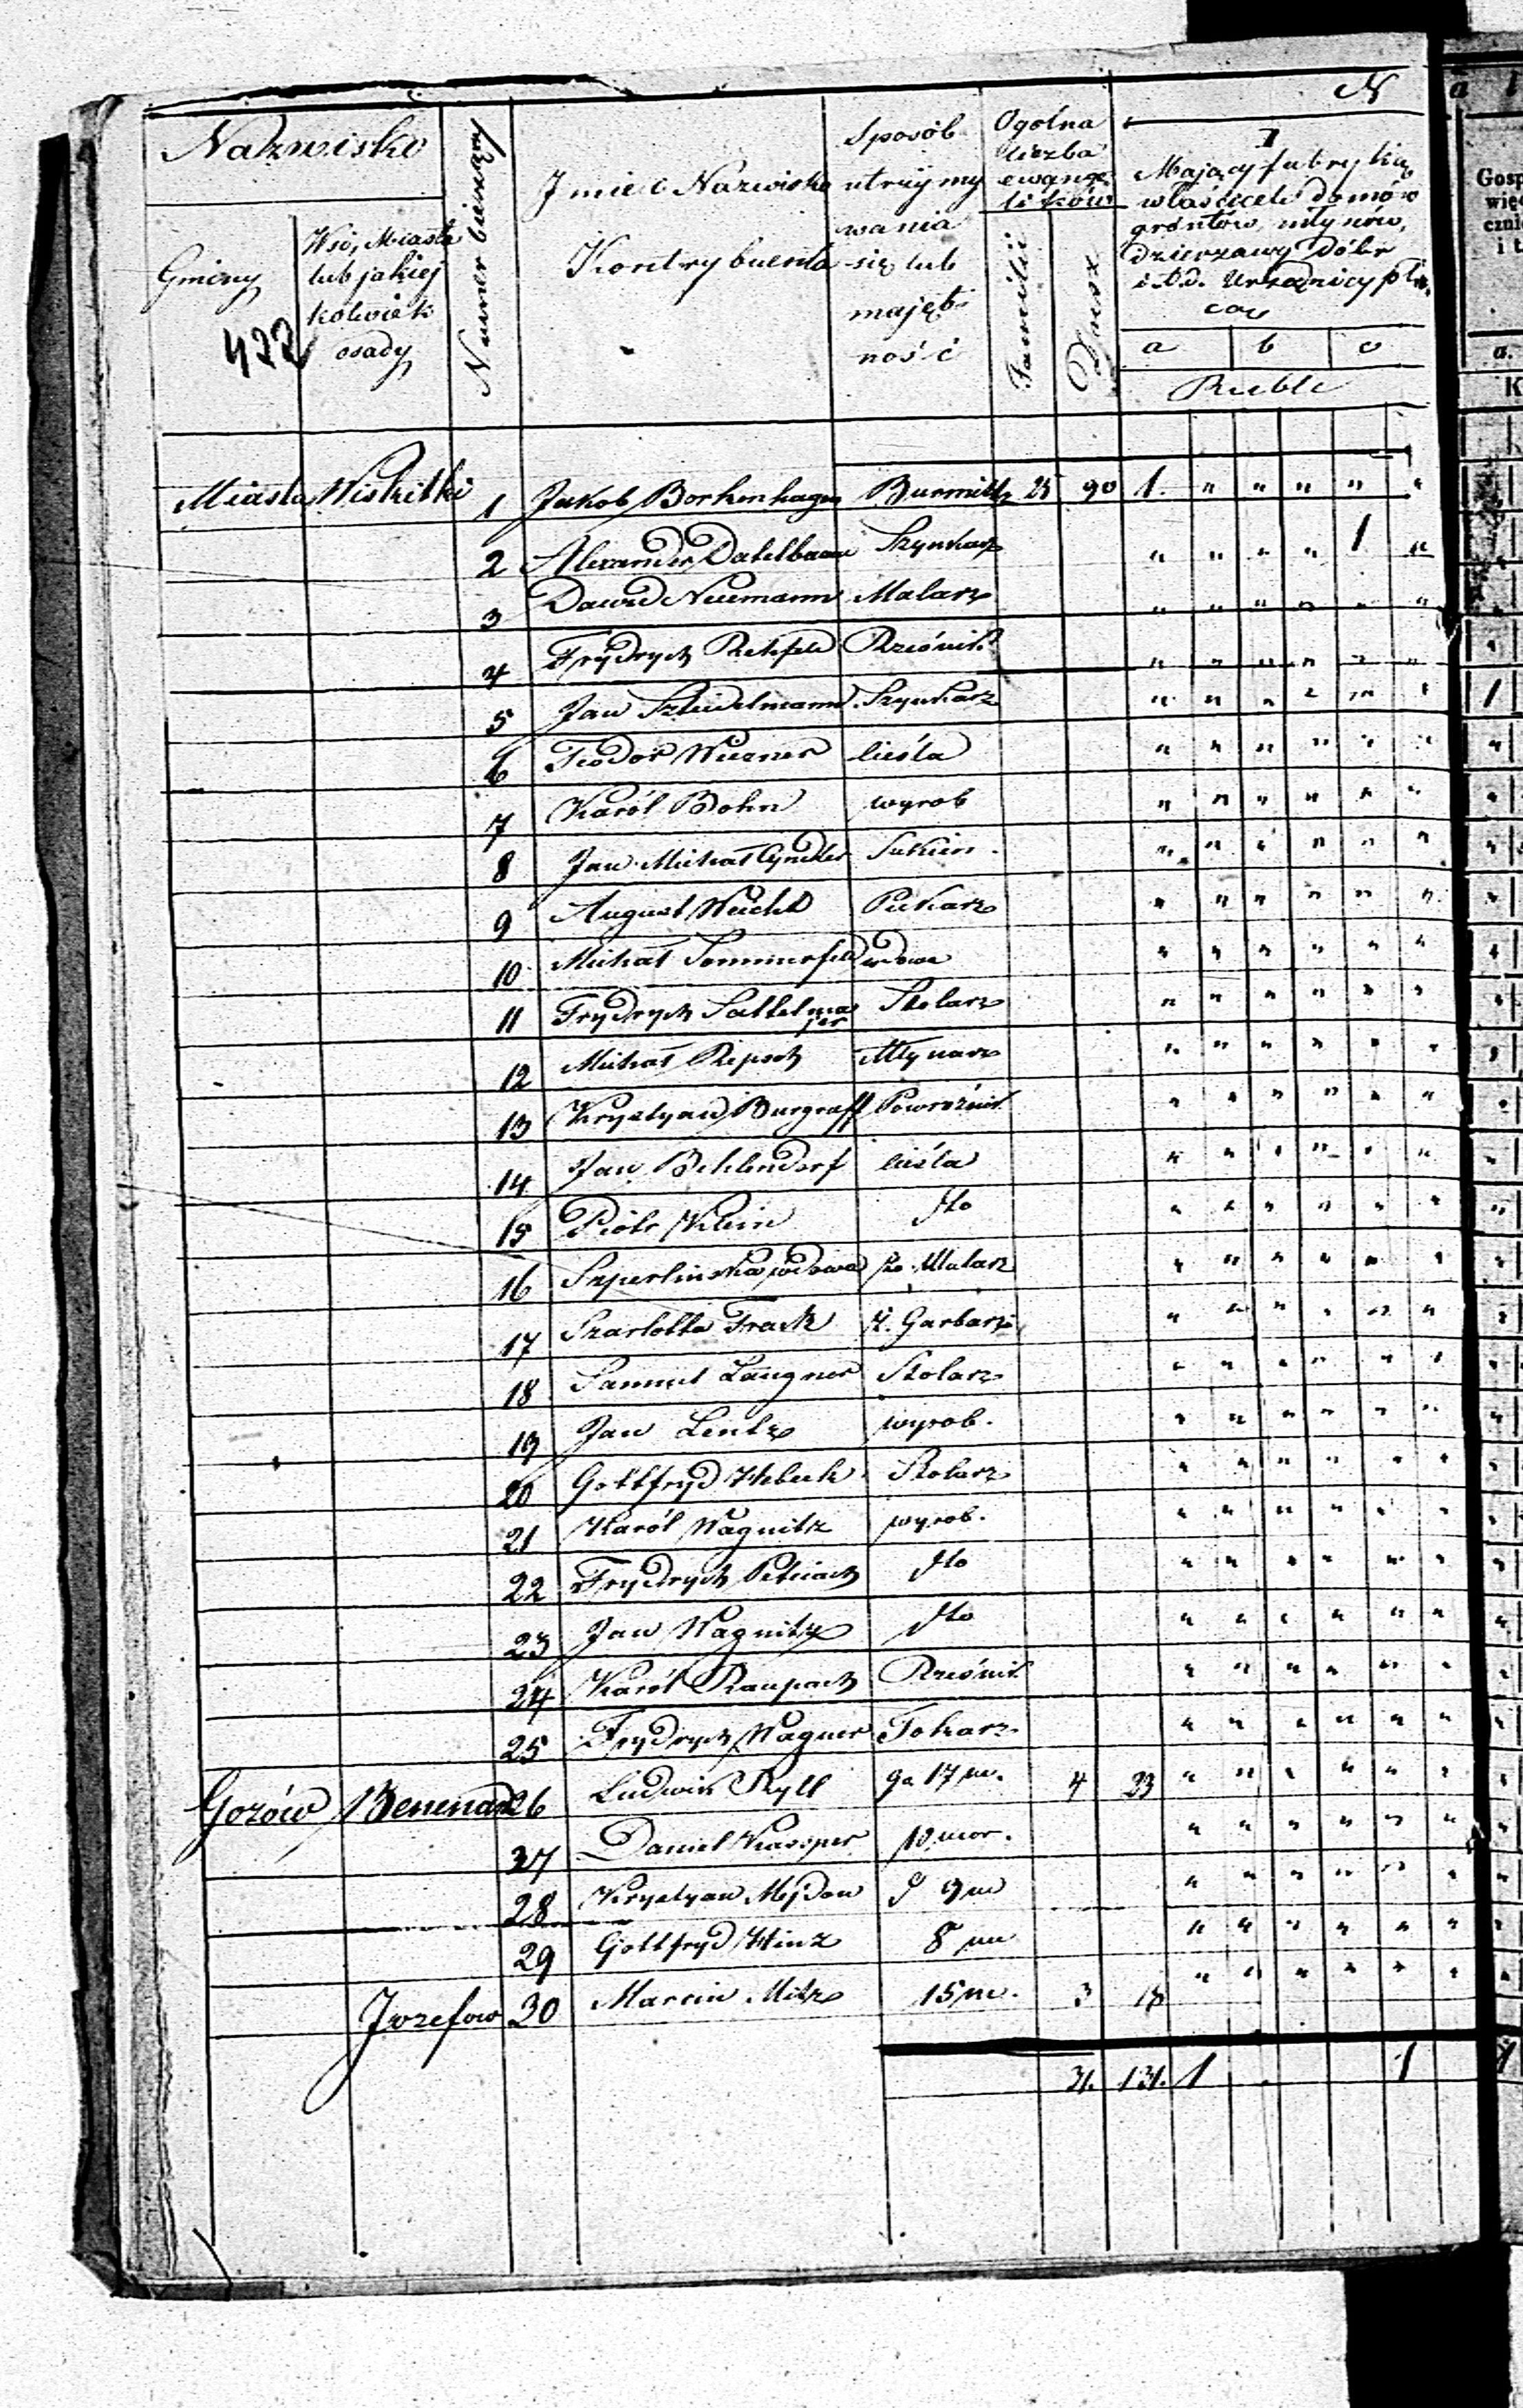 N
Nazwisko
Gminy
Wsi, Miasta
lub jakiej
kolwiek
osady
422
Numer bieżący
Imie i Nazwisko
Kontrybuenta
Sposób
utrzymy
wania
się lub
majęt-
ność
Ogólna
liczba
ewange-
lików
Familii
Dusz
I
Mający fabrykę
właściciele domów
gruntów, młynów,
dzierżawy dóbr
i t. d. Urzędnicy
a b c
Ruble
Miasto Wiskitki 1 Jakob Borkenhagen Burmistz 25 90 1 " " " " "
2 Alexander Datelbaum Szynkarz " " " " 1 "
3 Dawid Neumann Malarz " " " " " "
4 Frydrych Rehfeld Rzeźnik " " " " " "
5 Jan Szteidelmann Szynkarz " " " " " "
6 Teodor Wiezner Cieśla " " " " " "
7 Karól Bohn wyrob " " " " " "
8 Jan Michał Cyndler Sukien. " " " " " "
9 August Weicht Piekarz " " " " " "
10 Michał Sommerfeld wdowa " " " " " "
11 Frydrych Sattelma
jer Stolarz " " " " " "
12 Michał Ripsch Młynarz " " " " " "
13 Krystyan Burgraff Powroźnik " " " " " "
14 Jan Behlendorf Cieśla " " " " " "
15 Piotr Klein dto " " " " " "
16 Szperlinska wdowa po Malarz " " " " " "
17 Szarlotta Frach Garbarz " " " " " "
18 Samuel Laugner Stolarz " " " " " "
19 Jan Lentz wyrob. " " " " " "
20 Gottfryd Stolarz " " " " " "
21 Karól Wagnitz wyrob. " " " " " "
22 Frydrych dto " " " " " "
23 Jan Wagnitz dto " " " " " "
24 Karól Raupach Rzeźnik " " " " " "
25 Frydrych Wagner Tokarz " " " " " "
Gozów Benenard 26 Ludwik Ryll 17 m. 4 23 " " " " " "
27 Daniel Kasper 10 mor. " " " " " "
28 Krystyan Mejdon 9 m " " " " " "
29 Gottfryd Hinz 8 m " " " " " "
Jozefow 30 Marcin Mitz 15 m. 3 18 " " " " " "
31. 131. 1 1